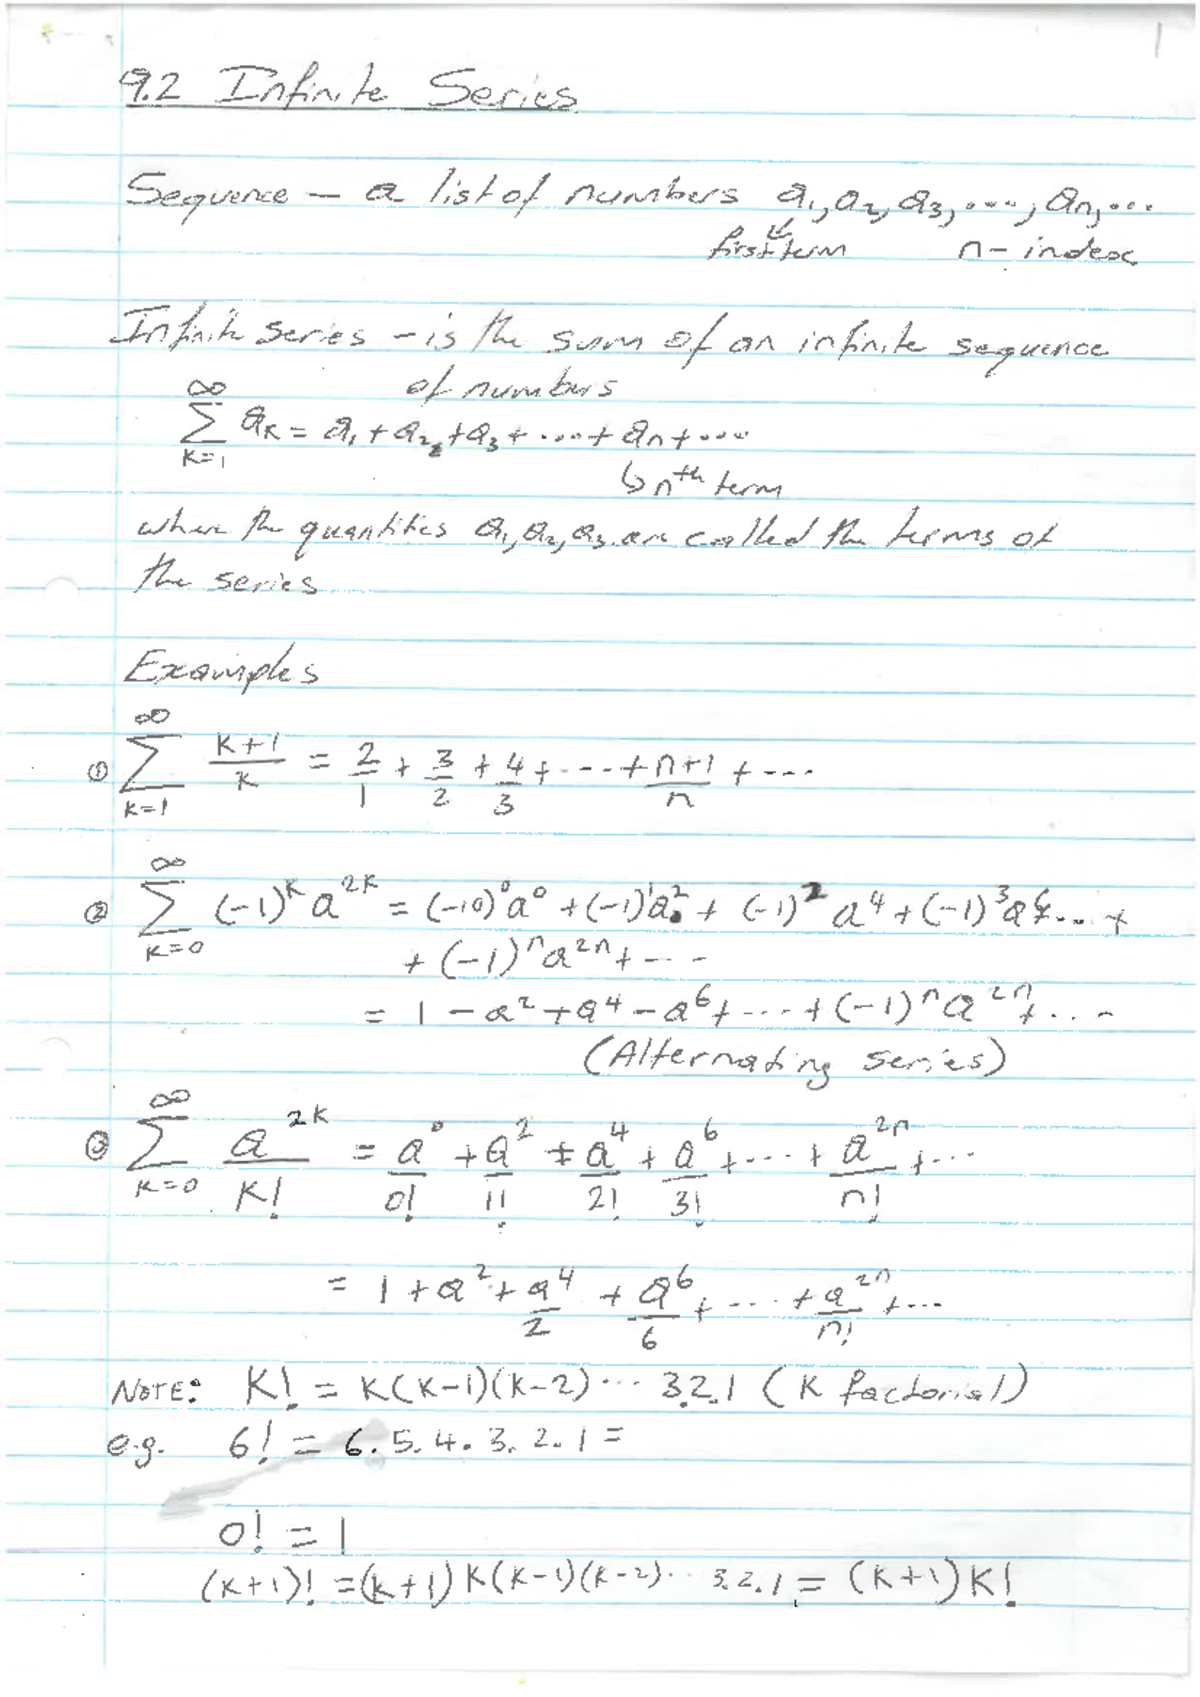 1
9.2 Infinite Series
Sequence – a list of numbers a₁, a₂, a₃, ..., aₙ, ...
first term n – index
Infinite series – is the sum of an infinite sequence
of numbers
∞
∑ aₖ = a₁ + a₂ + a₃ + ... + aₙ + ...
k=1
↳ nᵗʰ term
where the quantities a₁, a₂, a₃ are called the terms of
the series
Examples
① ∑_{k=1}^{∞} (k+1)/k = 2/1 + 3/2 + 4/3 + ... + (n+1)/n + ...
② ∑_{k=0}^{∞} (-1)^k a^{2k} = (-10)^0 a^0 + (-1)^1 a^2 + (-1)^2 a^4 + (-1)^3 a^6 ... +
+ (-1)^n a^{2n} + ...
= 1 - a² + a⁴ - a⁶ + ... + (-1)^n a^{2n} + ...
(Alternating series)
③ ∑_{k=0}^{∞} a^{2k}/k! = a^0/0! + a^2/1! + a^4/2! + a^6/3! + ... + a^{2n}/n! + ...
= 1 + a² + a⁴/2 + a⁶/6 + ... + a^{2n}/n! + ...
NOTE: K! = K(K-1)(K-2) ... 3.2.1 (K factorial)
e.g. 6! = 6.5.4.3.2.1 =
0! = 1
(K+1)! = (K+1)K(K-1)(K-2)... 3.2.1 = (K+1)K!